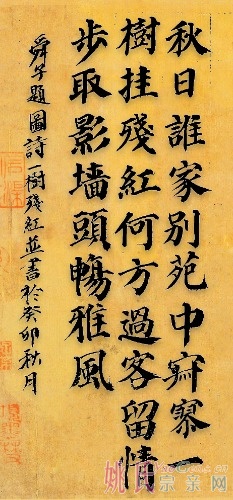 秋日誰家別苑中寂寥一
樹挂殘紅何方過客留情
步取影墻頭暢雅風
舜午題圖詩一樹殘紅並書於癸卯秋月
姚氏宗亲网